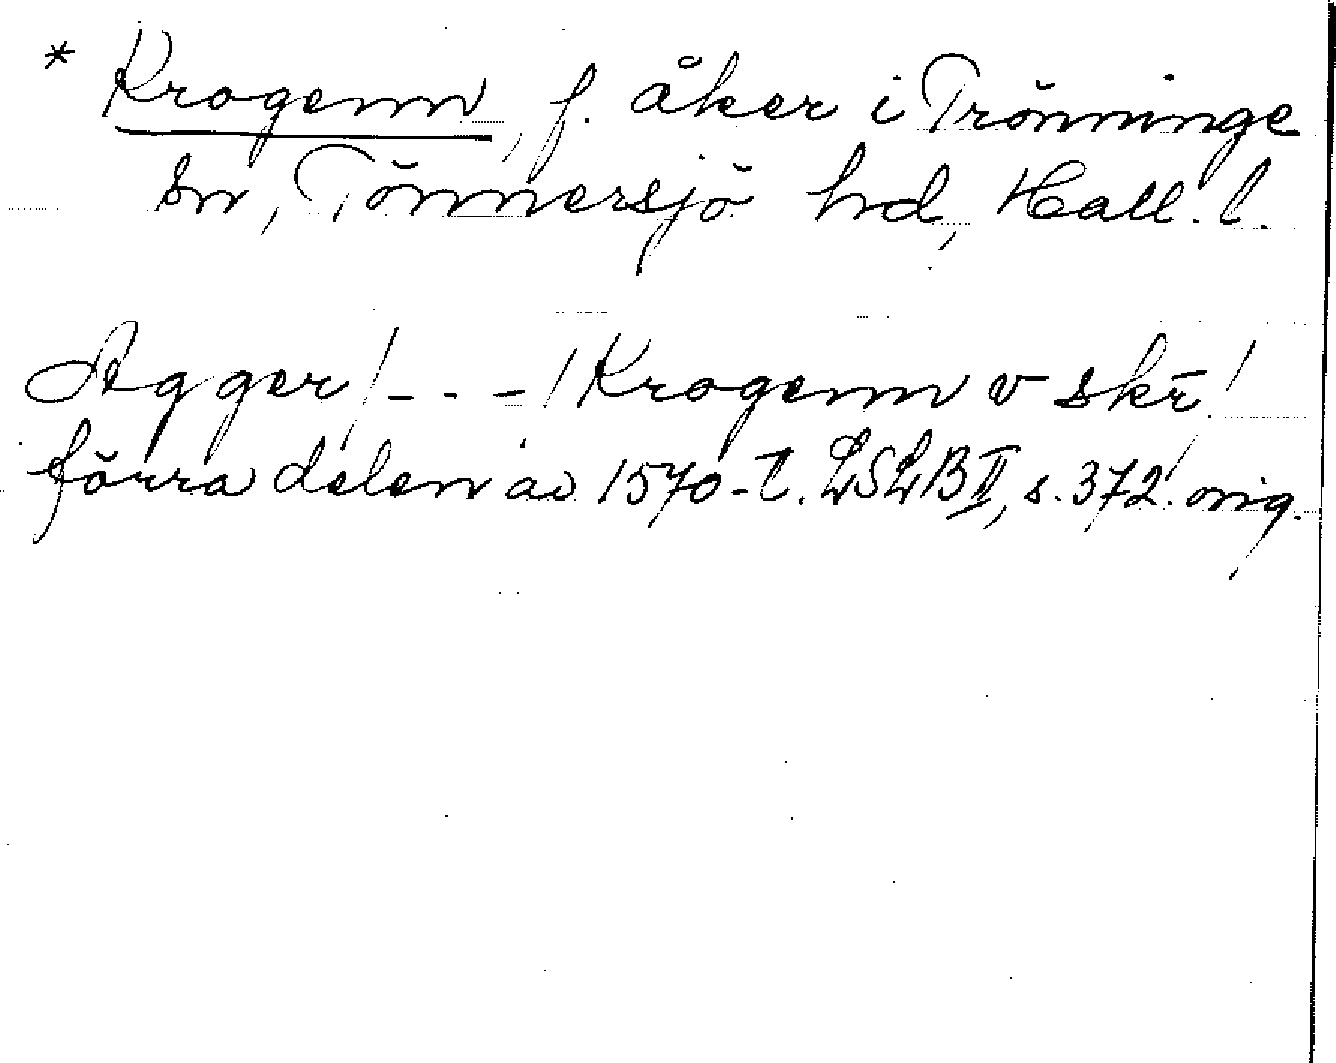 * Krogenn, f. åker i Trönninge
sn, Tönnersjö hd, Hall. l.
Agger /- - -/ Krogenn v skr̄!
förra delen av 1570-t. LSLB II, s. 372! orig.